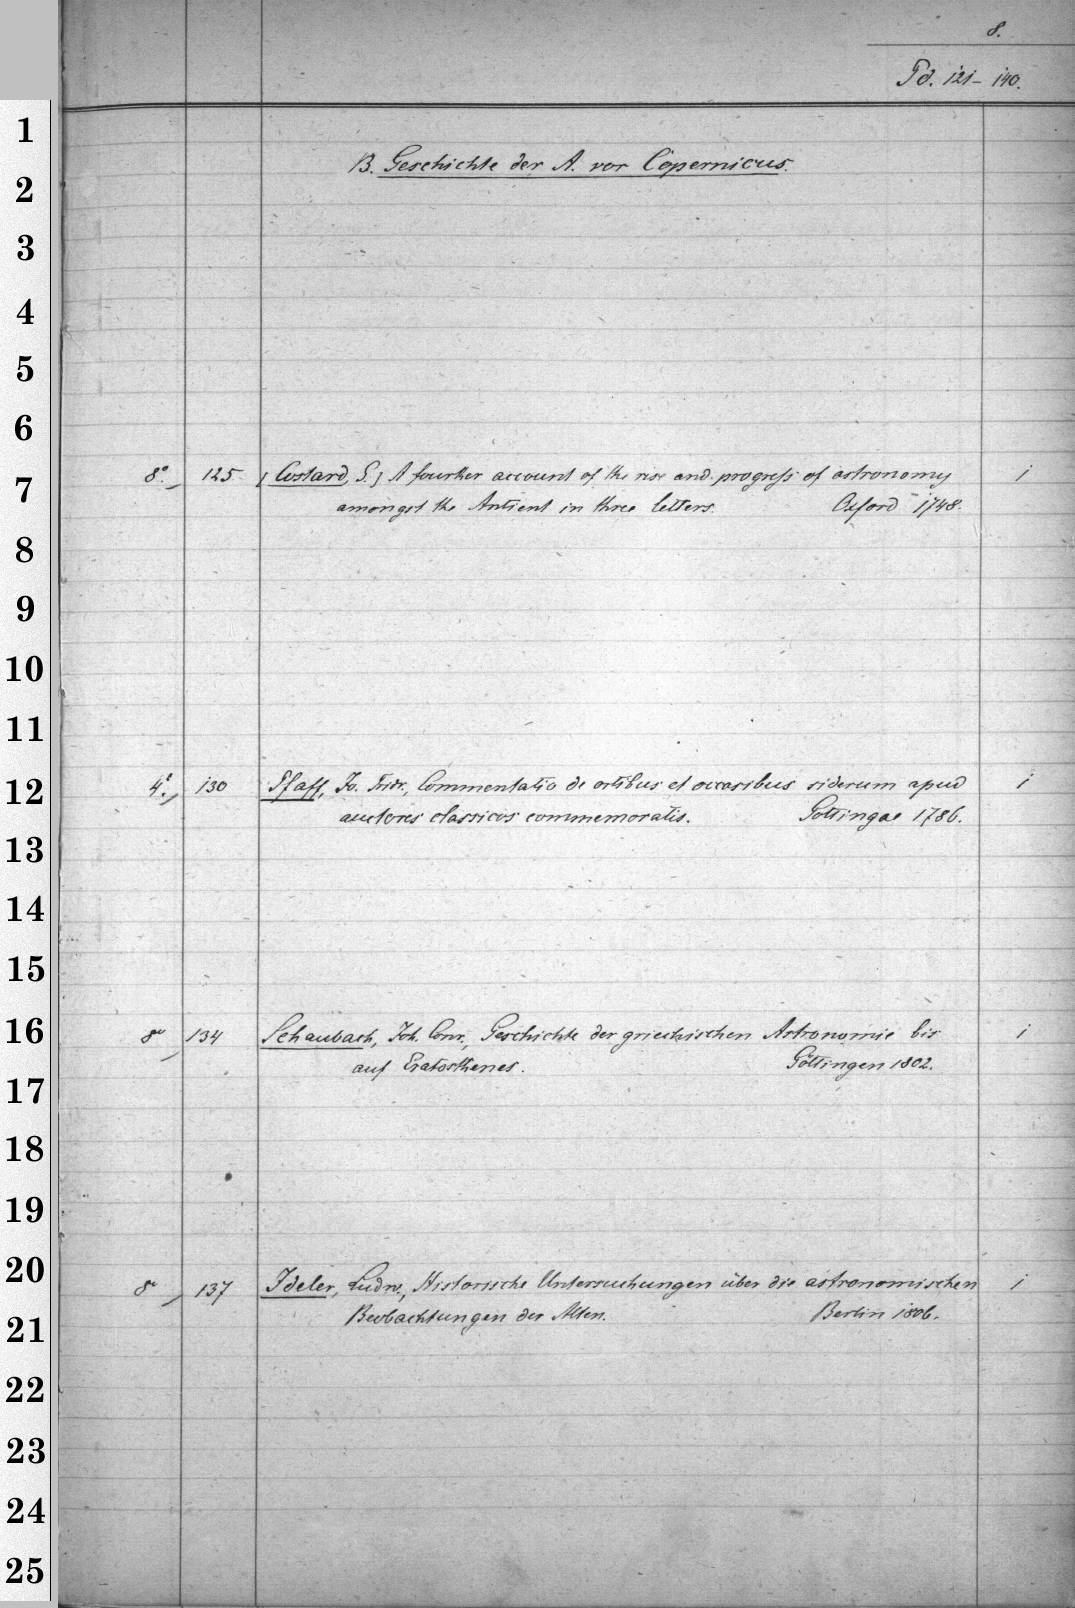 8.
Pd. 121-140.
B. Geschichte der A. vor Copernicus.
8° 125 [Costard, G.] A fourther account of the rise and progress of astronomy 1
amongst the Antient in three letters. Oxford 1748.
4° 130 Pfaff, Jo. Fridr., Commentatio de ortibus et occasibus siderum apud 1
auctores classicos commemoratis. Gottingae 1786.
8° 134 Schaubach, Joh. Conr., Geschichte der griechischen Astronomie bis 1
auf Eratosthenes. Göttingen 1802.
8° 137 Ideler, Ludw., Historische Untersuchungen über die astronomischen 1
Beobachtungen der Alten. Berlin 1806.
1
2
3
4
5
6
7
8
9
10
11
12
13
14
15
16
17
18
19
20
21
22
23
24
25